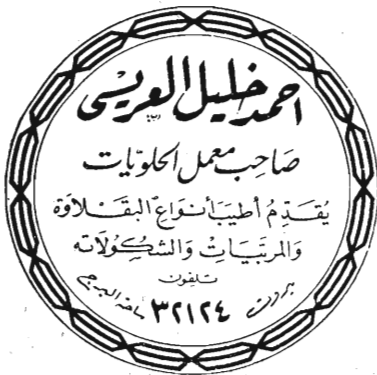 احمد خليل العريسي
صاحب معمل الحلويات
يُقدّمُ أطيبَ أنواع البقلاوة
والمربّيات والشكولاته
تلفون
بيروت ٣٢١٢٤ ساحة البرج